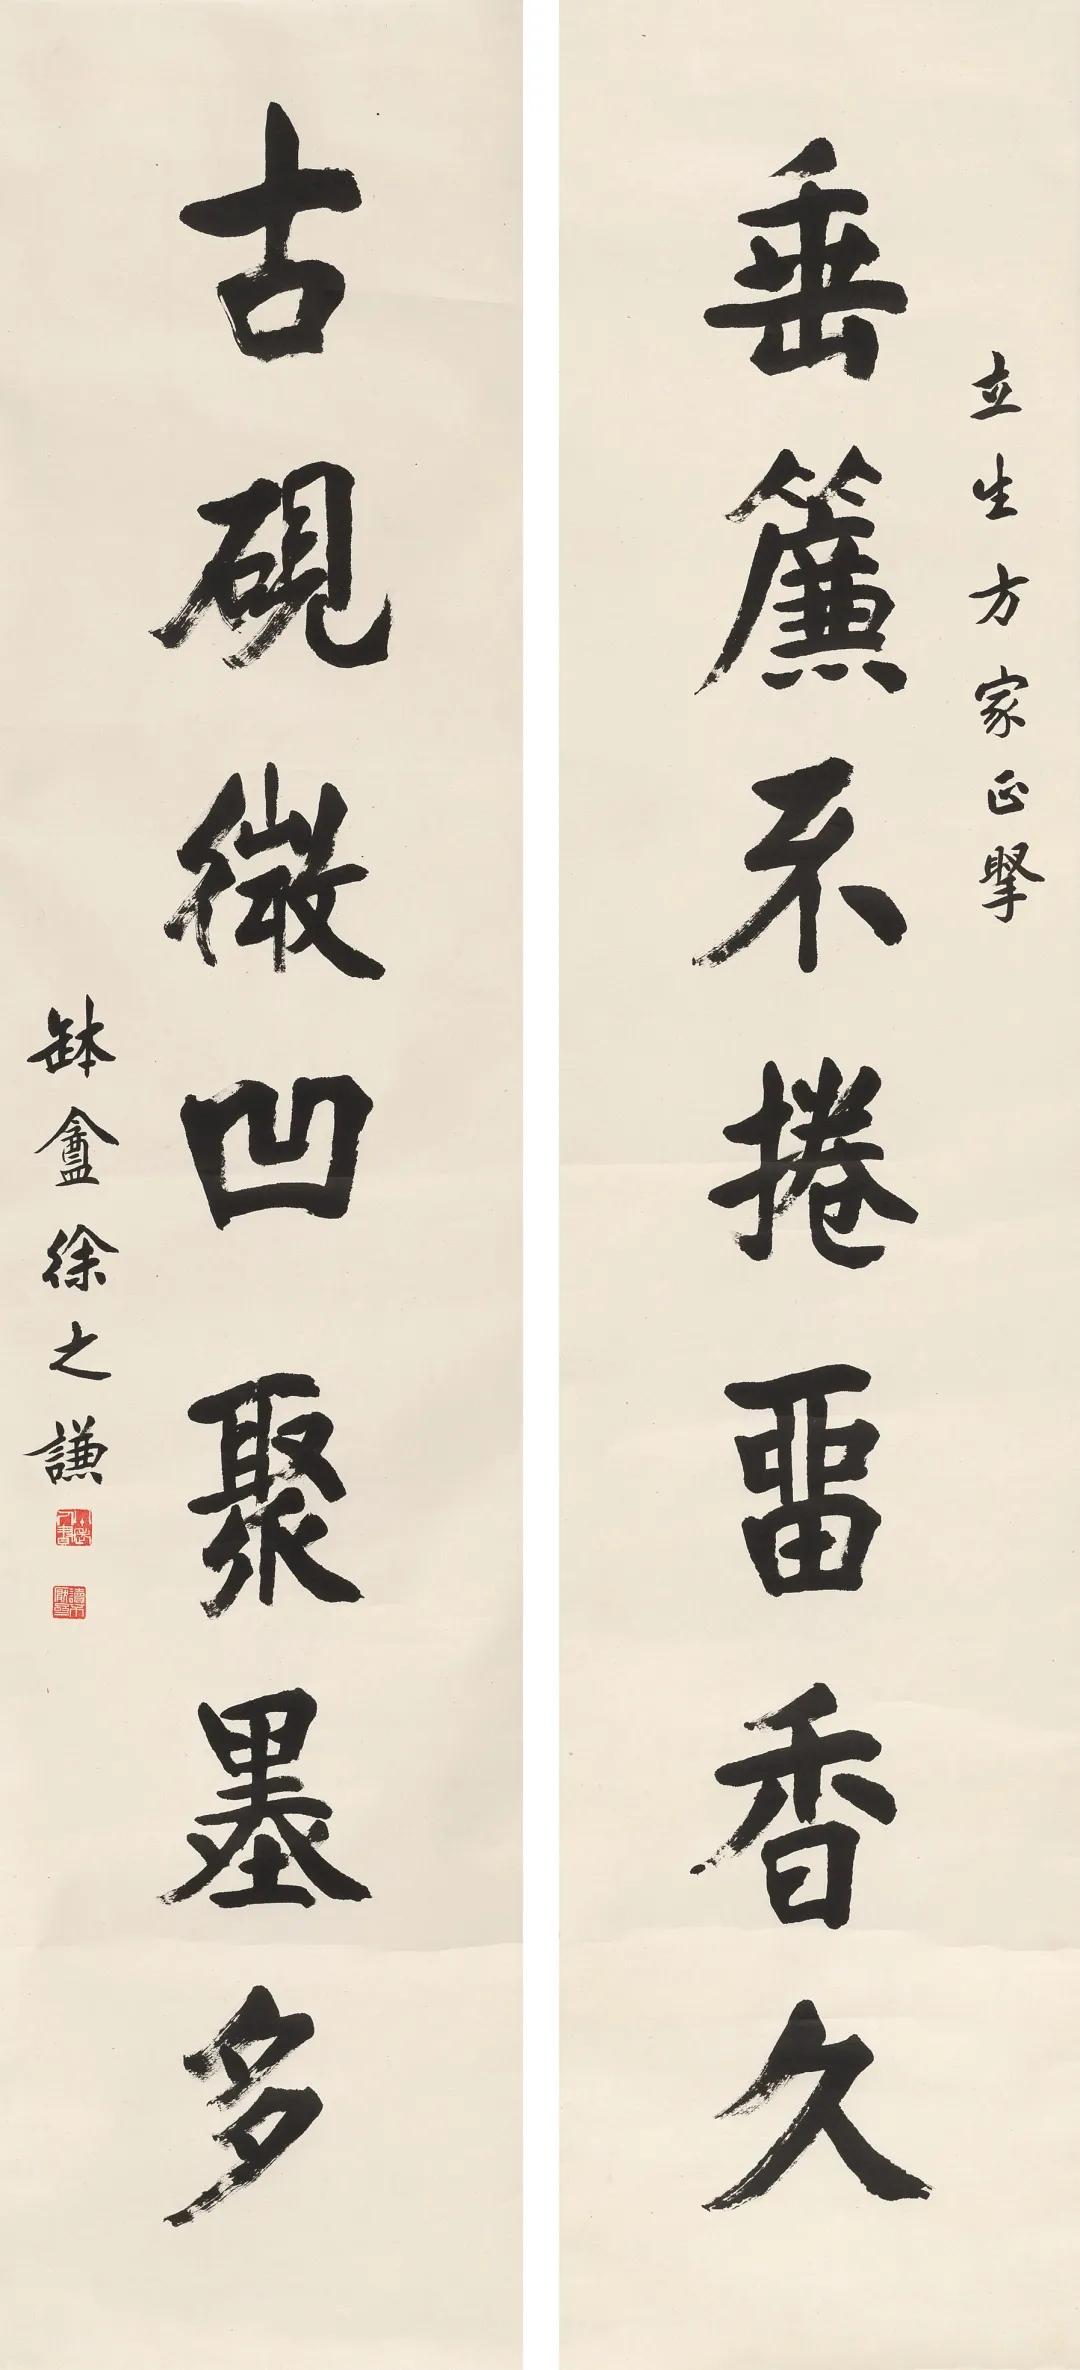 立生方家正掔
垂簾不捲畱香久
古硯微凹聚墨多
缽盦徐之謙